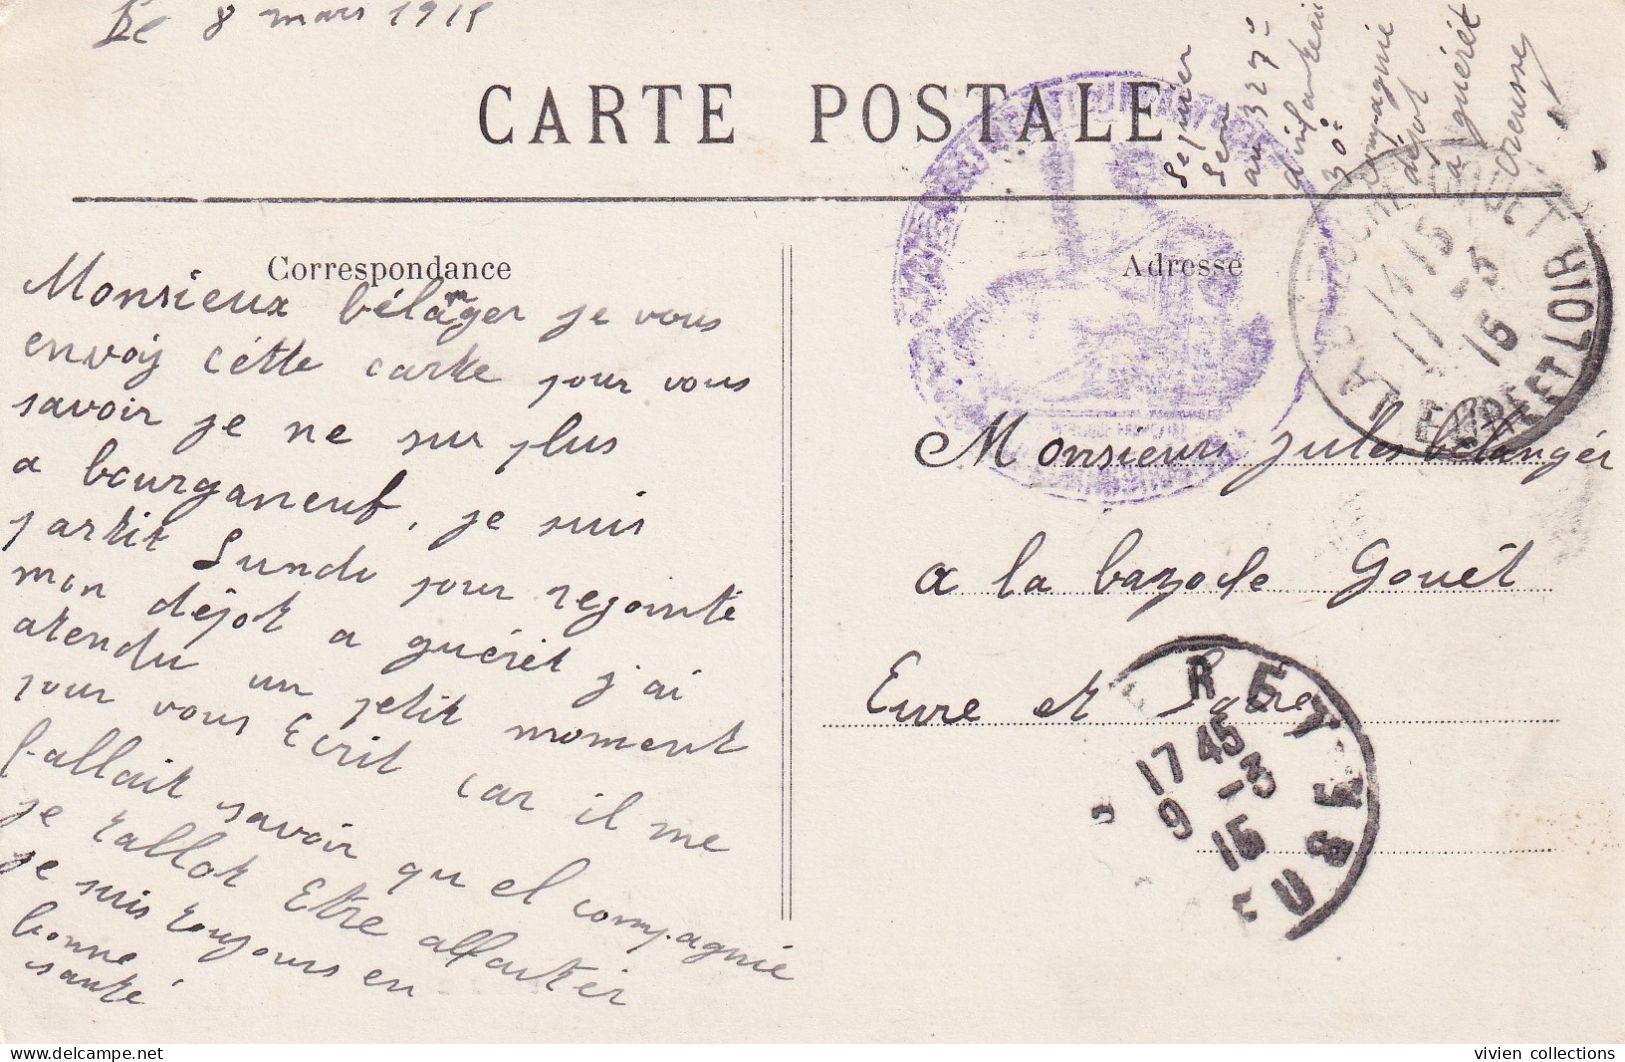 Le 8 mars 1915
CARTE POSTALE
au 327e
d'infanterie
30e
compagnie
dépot
a guérét
Creusse
Correspondance
Monsieux bélanger je vous
envoj cétte carte pour vous
savoir je ne sur plus
a bourganeuf, je suis
partit Lundi pour rejointe
mon dépot a guérét j'ai
atendu un petit moment
pour vous Ecrit car il me
fallait savoir qu el compagnie
je vallot Etre affarter
je suis toujours en
bonne
santé
Adresse
Monsieur jules bélangér
a la bazode Gouét
Eure et Loire
14 15
11 -3
15
EURE ET LOIR
RET
17 45
9 -3
15
CREUSE
vivien collections